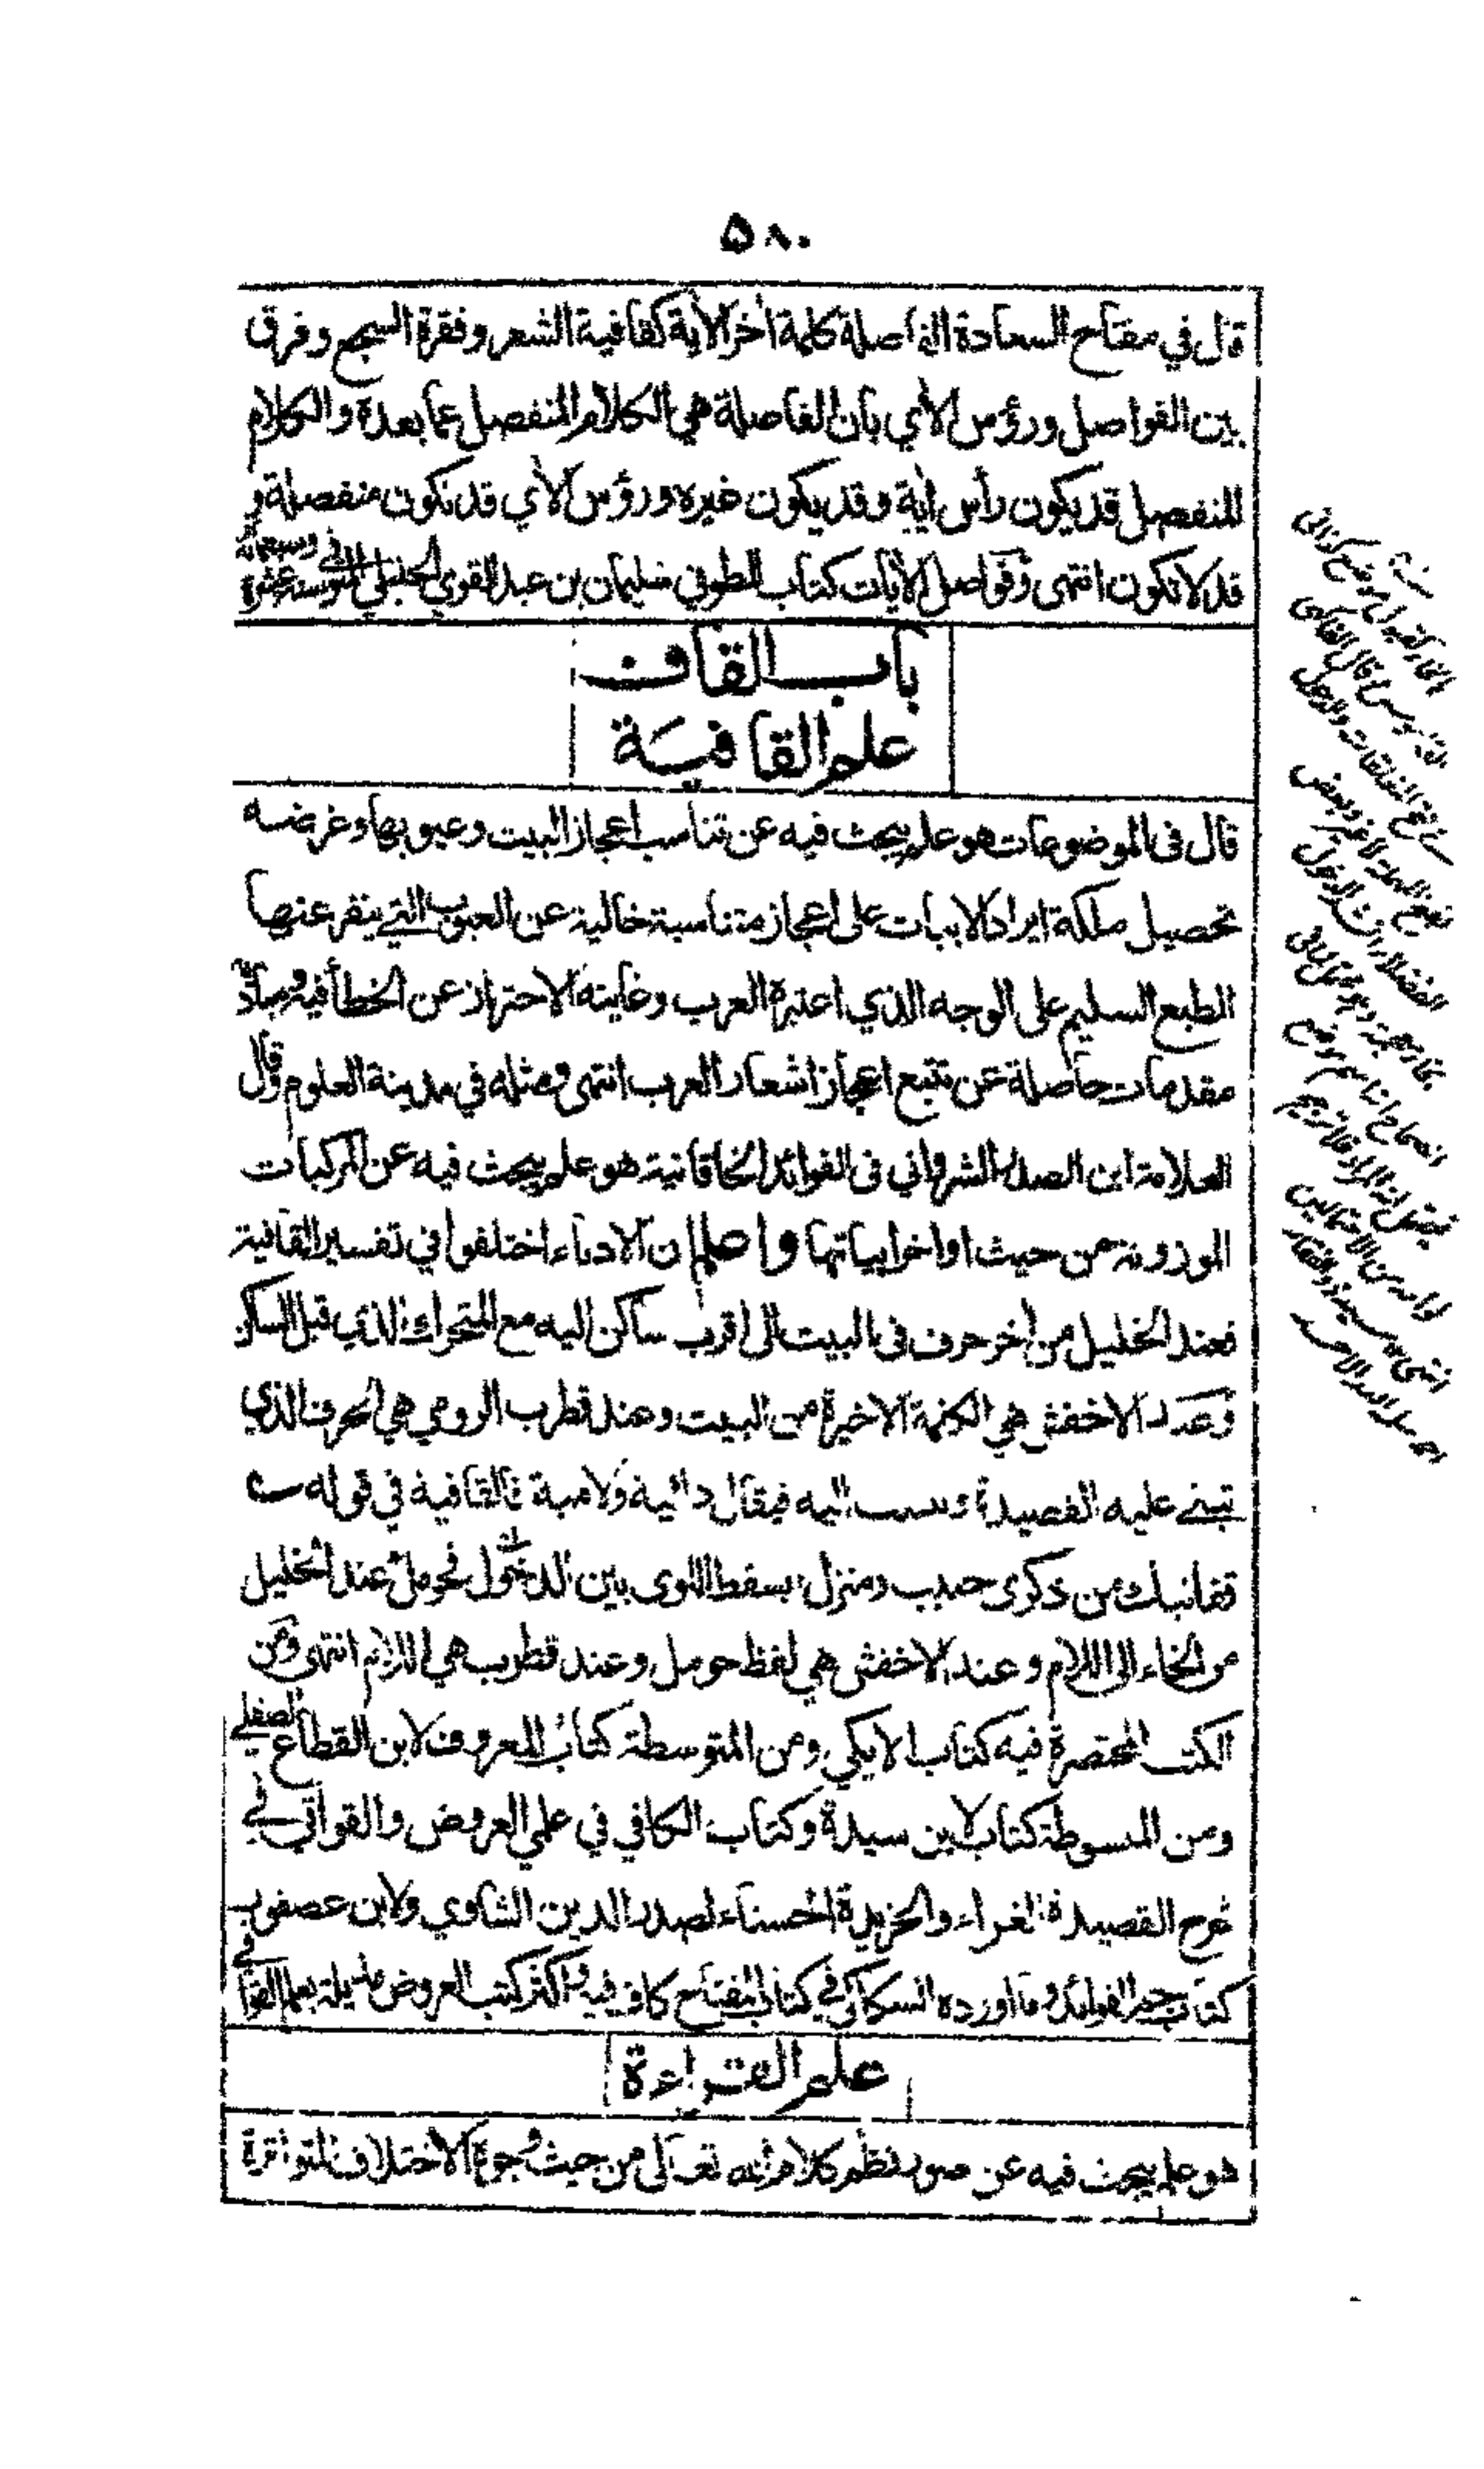 ٥٨٠
قال في مفتاح السعادة الفاصلة كلمة اخر الاية كقافية الشعر وفقرة السجع وفرق
بين الفواصل ورؤس الأي بان الفاصلة هي الكلام المنفصل عما بعدة والكلام
المنفصل قد يكون رأس أية وقد يكون غيره ورؤس الأي قد تكون منفصلة و
قد لا تكون انتهى وفواصل الأيات كتاب الطوفي سليمان بن عبد القوي الحنبلي المتوفى سنة عشرة وسبعمائة
باب القاف
علم القافية
قال في الموضوعات هو علم يبحث فيه عن تناسب اعجاز البيت وعيوبها وغرضه
تحصيل ملكة ايراد الابيات على اعجاز متناسبة خالية عن العيوب التي ينفر عنها
الطبع السليم على الوجه الذي اعتبرة العرب وغايته الاحتراز عن الخطأ فيه ومباديه
مقدمات حاصلة عن تتبع اعجاز اشعار العرب انتهى ومثله في مدينة العلوم وقال
العلامة ابن الصدر الشرواني في الفوائد الخاقانية هو علم يبحث فيه عن المركبات
الموزونة من حيث اواخر ابياتها واعلم ان الادباء اختلفوا في تفسير القافية
فعند الخليل من اخر حرف في البيت الى اقرب ساكن اليه مع المتحرك الذي قبل الساكن
وعند الاخفش هي الكلمة الاخيرة من البيت وعند قطرب الروي هي الحرف الذي
تبنى عليه القصيدة وتنسب اليه فيقال دالية ولامية فالقافية في قوله
قفا نبك من ذكرى حبيب ومنزل بسقط اللوى بين الدخول فحومل عند الخليل
من الخاء الى اللام وعند الاخفش هي لفظ حومل وعند قطرب هي اللام انتهى ومن
الكتب المختصرة فيه كتاب الايكي ومن المتوسطة كتاب المعروف لابن القطاع الصقلي
ومن المبسوطة كتاب لابن سيدة وكتاب الكافي في علمي العروض والقوافي في
شرح القصيدة الغراء والخريدة الحسناء لصدر الدين الشاوي ولابن عصفور
كتاب الفوائد وما اورده السكاكي في كتاب المفتاح كاف فيه واكثر كتب العروض مذيلة بعلم القوافي
علم القراءة
هو علم يبحث فيه عن صور نظم كلام الله تعالى من حيث وجوه الاختلاف المتواترة